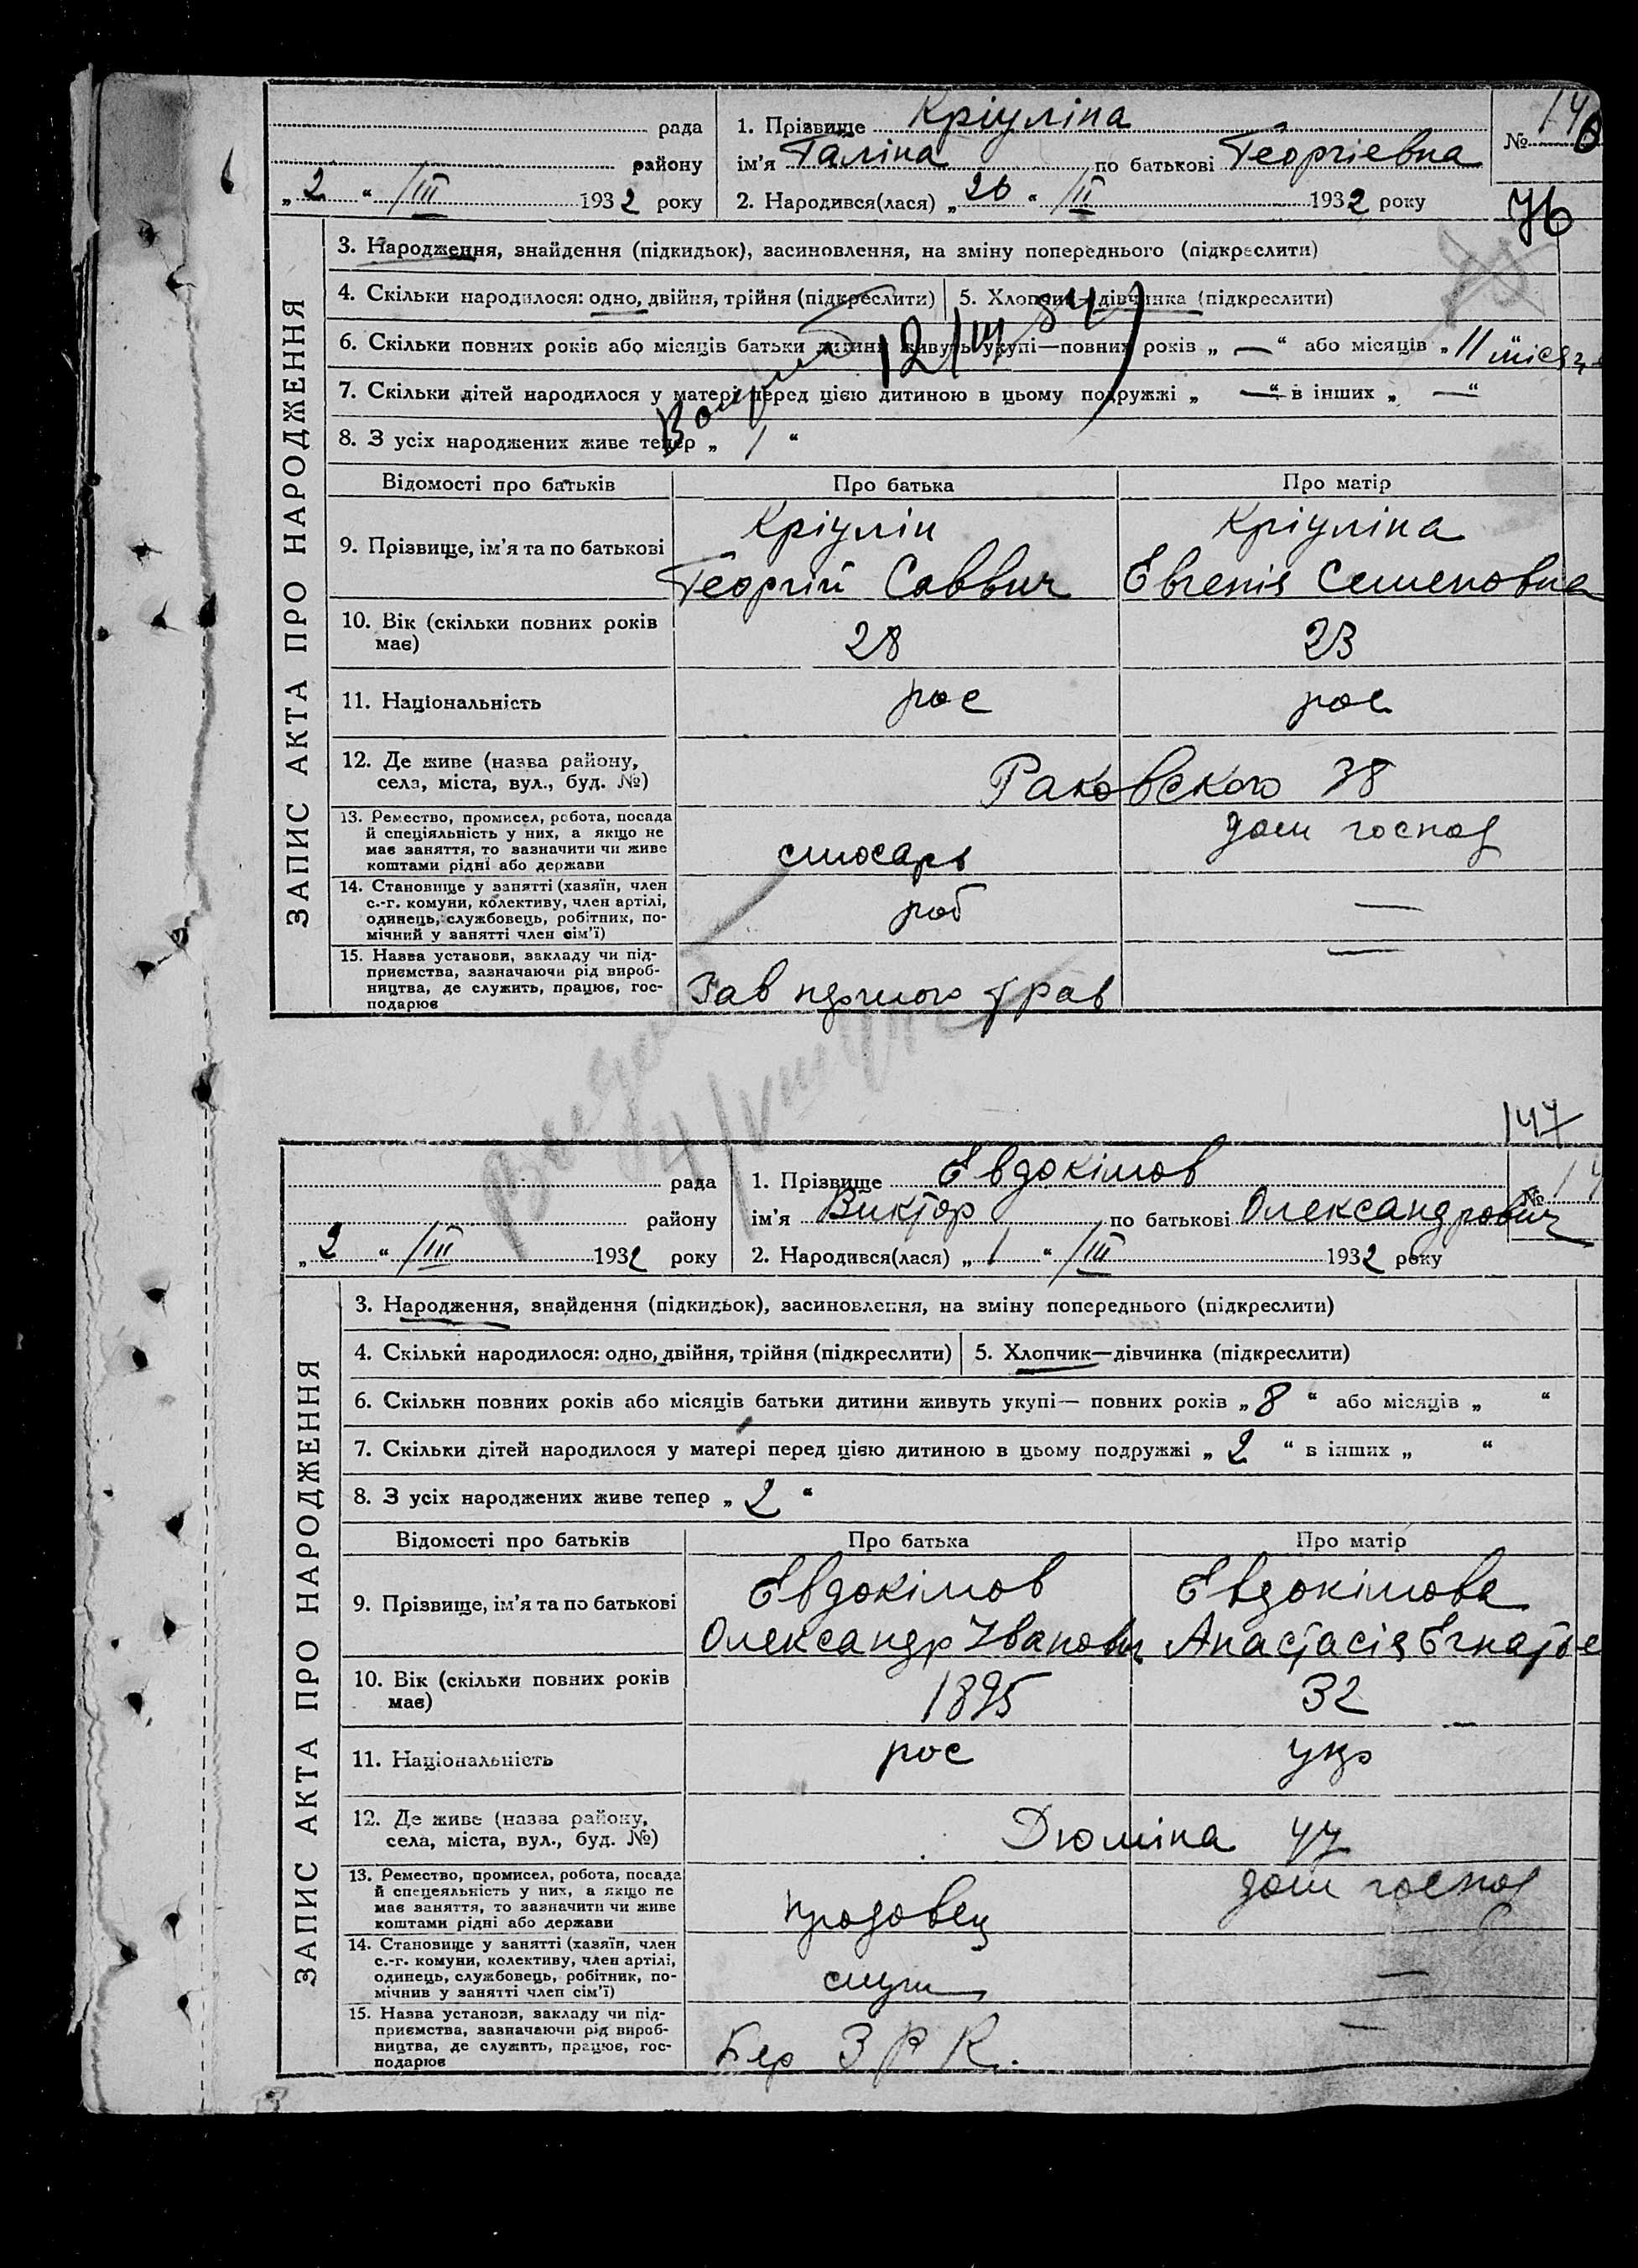 рада
району
„ 2 “ /III 1932 року
1. Прізвище Кріуліна
ім’я Галіна по батькові Георгіевна
2. Народився(лася) „ 26 “ /II 1932 року
№ 146
76
ЗАПИС АКТА ПРО НАРОДЖЕННЯ
3. Народження, знайдення (підкидьок), засиновлення, на зміну попереднього (підкреслити)
4. Скільки народилося: одно, двійня, трійня (підкреслити) 5. Хлопчик—дівчинка (підкреслити)
6. Скільки повних років або місяців батьки дитини живуть укупі—повних років „ — “ або місяців „ 11 “ місяц
12/III 34
7. Скільки дітей народилося у матері перед цією дитиною в цьому подружжі „ — “ в інших „ — “
8. З усіх народжених живе тепер „ 1 “
Відомості про батьків Про батька Про матір
9. Прізвище, ім’я та по батькові
Кріулін
Георгій Саввич
Кріуліна
Евгенія Семеновна
10. Вік (скільки повних років
має)
28 23
11. Національність рос рос
12. Де живе (назва району,
села, міста, вул., буд. №)
Раковского 38
13. Ремество, промисел, робота, посада
й спеціяльність у них, а якщо не
має заняття, то зазначити чи живе
коштами рідні або держави
слюсарь
дом господ
14. Становище у занятті (хазяїн, член
с.-г. комуни, колективу, член артілі,
одинець, службовець, робітник, по-
мічний у занятті член сім’ї)
роб —
15. Назва установи, закладу чи під-
приємства, зазначаючи рід вироб-
ництва, де служить, працює, гос-
подарює
Зав —
147
рада
району
„ 2 “ /III 1932 року
1. Прізвище Евдокімов
ім’я Виктор по батькові Олександрович
2. Народився(лася) „ 1 “ /III 1932 року
№ 14
ЗАПИС АКТА ПРО НАРОДЖЕННЯ
3. Народження, знайдення (підкидьок), засиновлення, на зміну попереднього (підкреслити)
4. Скільки народилося: одно, двійня, трійня (підкреслити) 5. Хлопчик—дівчинка (підкреслити)
6. Скільки повних років або місяців батьки дитини живуть укупі— повних років „ 8 “ або місяців „ “
7. Скільки дітей народилося у матері перед цією дитиною в цьому подружжі „ 2 “ в інших „ “
8. З усіх народжених живе тепер „ 2 “
Відомості про батьків Про батька Про матір
9. Прізвище, ім’я та по батькові
Евдокімов
Олександр Іванович
Евдокімова
Анастасія Егнатье
10. Вік (скільки повних років
має)
1895 32
11. Національність рос укр
12. Де живе (назва району,
села, міста, вул., буд. №)
Дюміна 47
13. Ремество, промисел, робота, посада
й спецеяльність у них, а якщо не
має заняття, то зазначити чи живе
коштами рідні або держави
продовец
дом господ
14. Становище у занятті (хазяїн, член
с.-г. комуни, колективу, член артілі,
одинець, службовець, робітник, по-
мічнив у занятті член сім’ї)
служ —
15. Назва установи, закладу чи під-
приємства, зазначаючи рід вироб-
ництва, де служить, працює, гос-
подарює
Бер З Р К. —